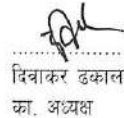 दिवाकर ढकाल
का. अध्यक्ष